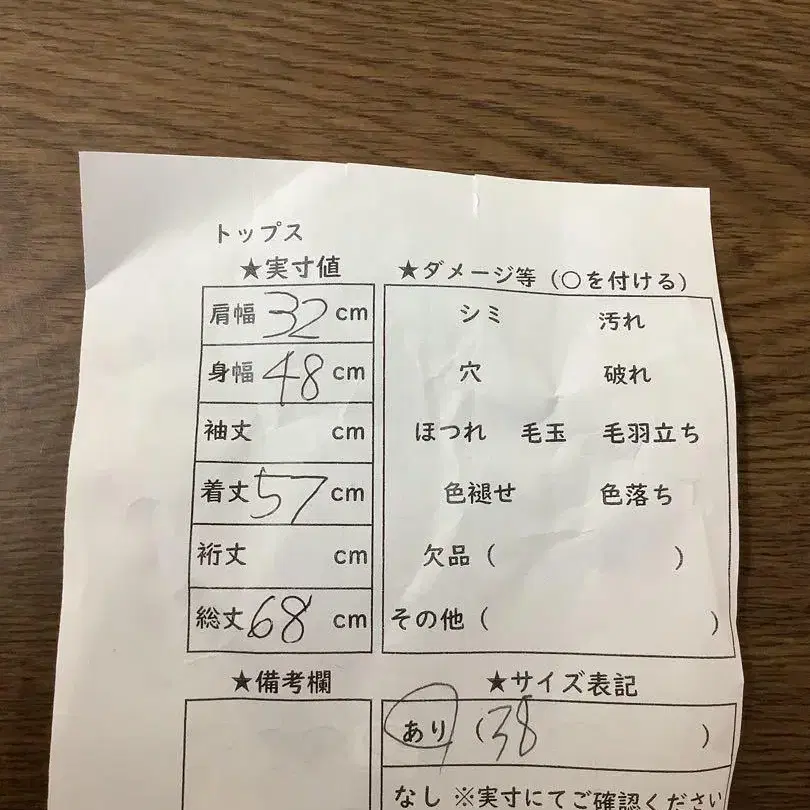 トップス
★実寸値
肩幅 32 cm
身幅 48 cm
袖丈 cm
着丈 57 cm
裄丈 cm
総丈 68 cm
★ダメージ等（○を付ける）
シミ 汚れ
穴 破れ
ほつれ 毛玉 毛羽立ち
色褪せ 色落ち
欠品（ ）
その他（ ）
★備考欄
★サイズ表記
あり（38 ）
なし ※実寸にてご確認ください